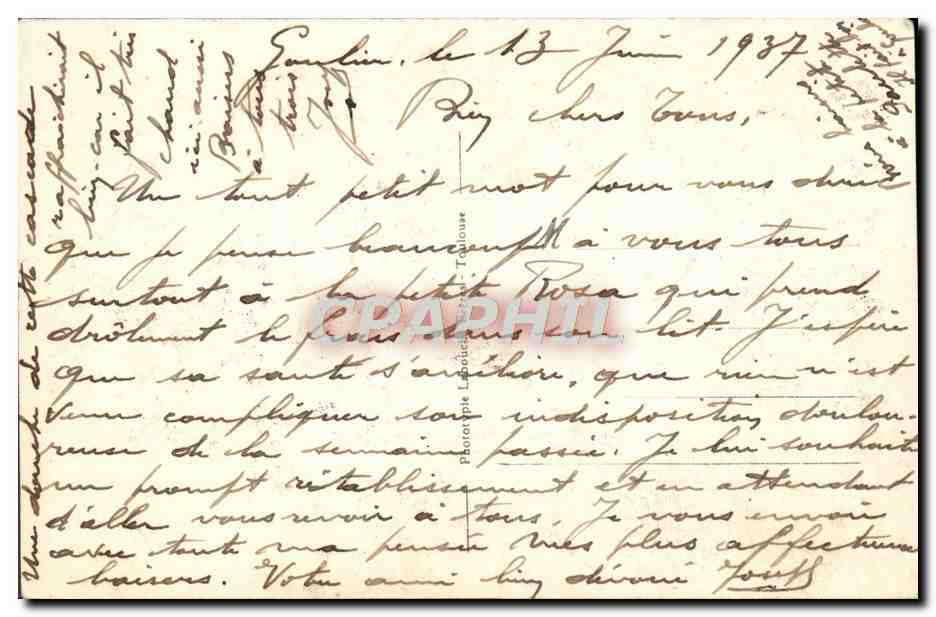 le 13 Juin 1937
Bien chers Tous,
Un tout petit mot pour vous dire
que je pense beaucoup à vous tous
surtout à la petite Rosa qui prend
drôlement le frais dans son lit. J'espère
que sa santé s'améliore, que rien n'est
venu compliquer son indisposition doulou-
reuse de la semaine passée. Je lui souhaite
un prompt rétablissement et en attendant
d'aller vous revoir à tous, Je vous envoie
avec toute ma pensée mes plus affectueux
baisers. Votre ami bien dévoué Joseph
Une douche de cette cascade
rafraichirait
bien car il
fait très
chaud
ici aussi
Baisers
à tous
trois
Phototypie Labouche Toulouse
CPAPHIL